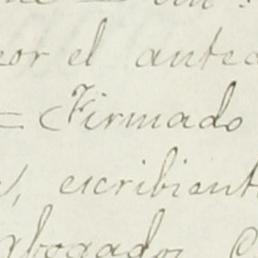 por el ante
= (Firmado
, escribient
abogados